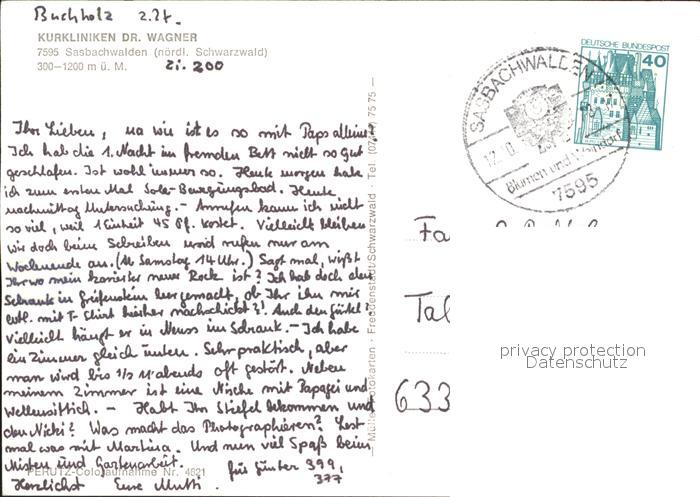 Buchholz z. Zt.
KURKLINIKEN DR. WAGNER
7595 Sasbachwalden (nördl. Schwarzwald)
300–1200 m ü. M. Zi. 200
Ihr Lieben, na wie ist es so mit Paps alleine
Ich hab die 1. Nacht im fremden Bett nicht so gut
geschlafen. Ist wohl immer so. Heute morgen habe
ich zum ersten Mal Sole-Bewegungsbad. Heute
nachmittag Untersuchung. – Anrufen kann ich nicht
so viel, weil 1 Einheit 45 Pf. kostet. Vielleicht bleiben
wir doch beim Schreiben und rufen nur am
Wochenende an. (Ab Samstag 14 Uhr.) Sagt mal, wißt
Ihr wo mein karierter neuer Rock ist? Ich hab doch den
Schrank in Greifenstein leergemacht, ob Ihr ihn mir
evtl. mit hierher nachschickt?! Auch den Gürtel?
Vielleicht hängt er in Neuss im Schrank. – Ich habe
ein Zimmer gleich unten. Sehr praktisch, aber
man wird bis 1/2 11 abends oft gestört. Neben
meinem Zimmer ist eine Nische mit Papagei und
Wellensittich. – Habt Ihr Stiefel bekommen und
den Nicki? Was macht das Photographieren? Lest
mal was mit Martina. Und nun viel Spaß beim
Misten und Gartenarbeit. für Günter 399,
377
PERUTZ-Coloraufnahme Nr. 4821
Herzlichst Eure Mutti.
Müller Fotokarten · Freudenstadt/Schwarzwald · Tel. 75 75 —
DEUTSCHE BUNDESPOST
40
SASBACHWALDEN
Blumen und Weindorf
7595
Fa
Tal
633
privacy protection
Datenschutz